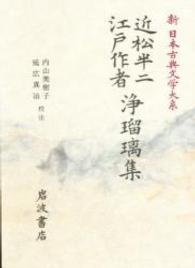 新 日本古典文学大系
近松半二
江戸作者 浄瑠璃集
内山美樹子
延広真治 校注
岩波書店